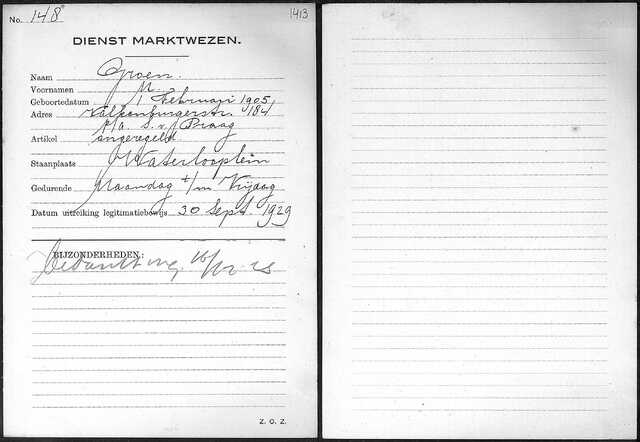 No. 148
1413
DIENST MARKTWEZEN.
Naam Groen.
Voornamen M.
Geboortedatum 1 Februari 1905
Adres Valkenburgerstr. 184
p/a. S. v. Praag
Artikel ongeregeld
Staanplaats Waterlooplein
Gedurende Maandag t/m Vrijdag
Datum uitreiking legitimatiebewijs 30 Sept. 1929
BIJZONDERHEDEN:
Z. O. Z.